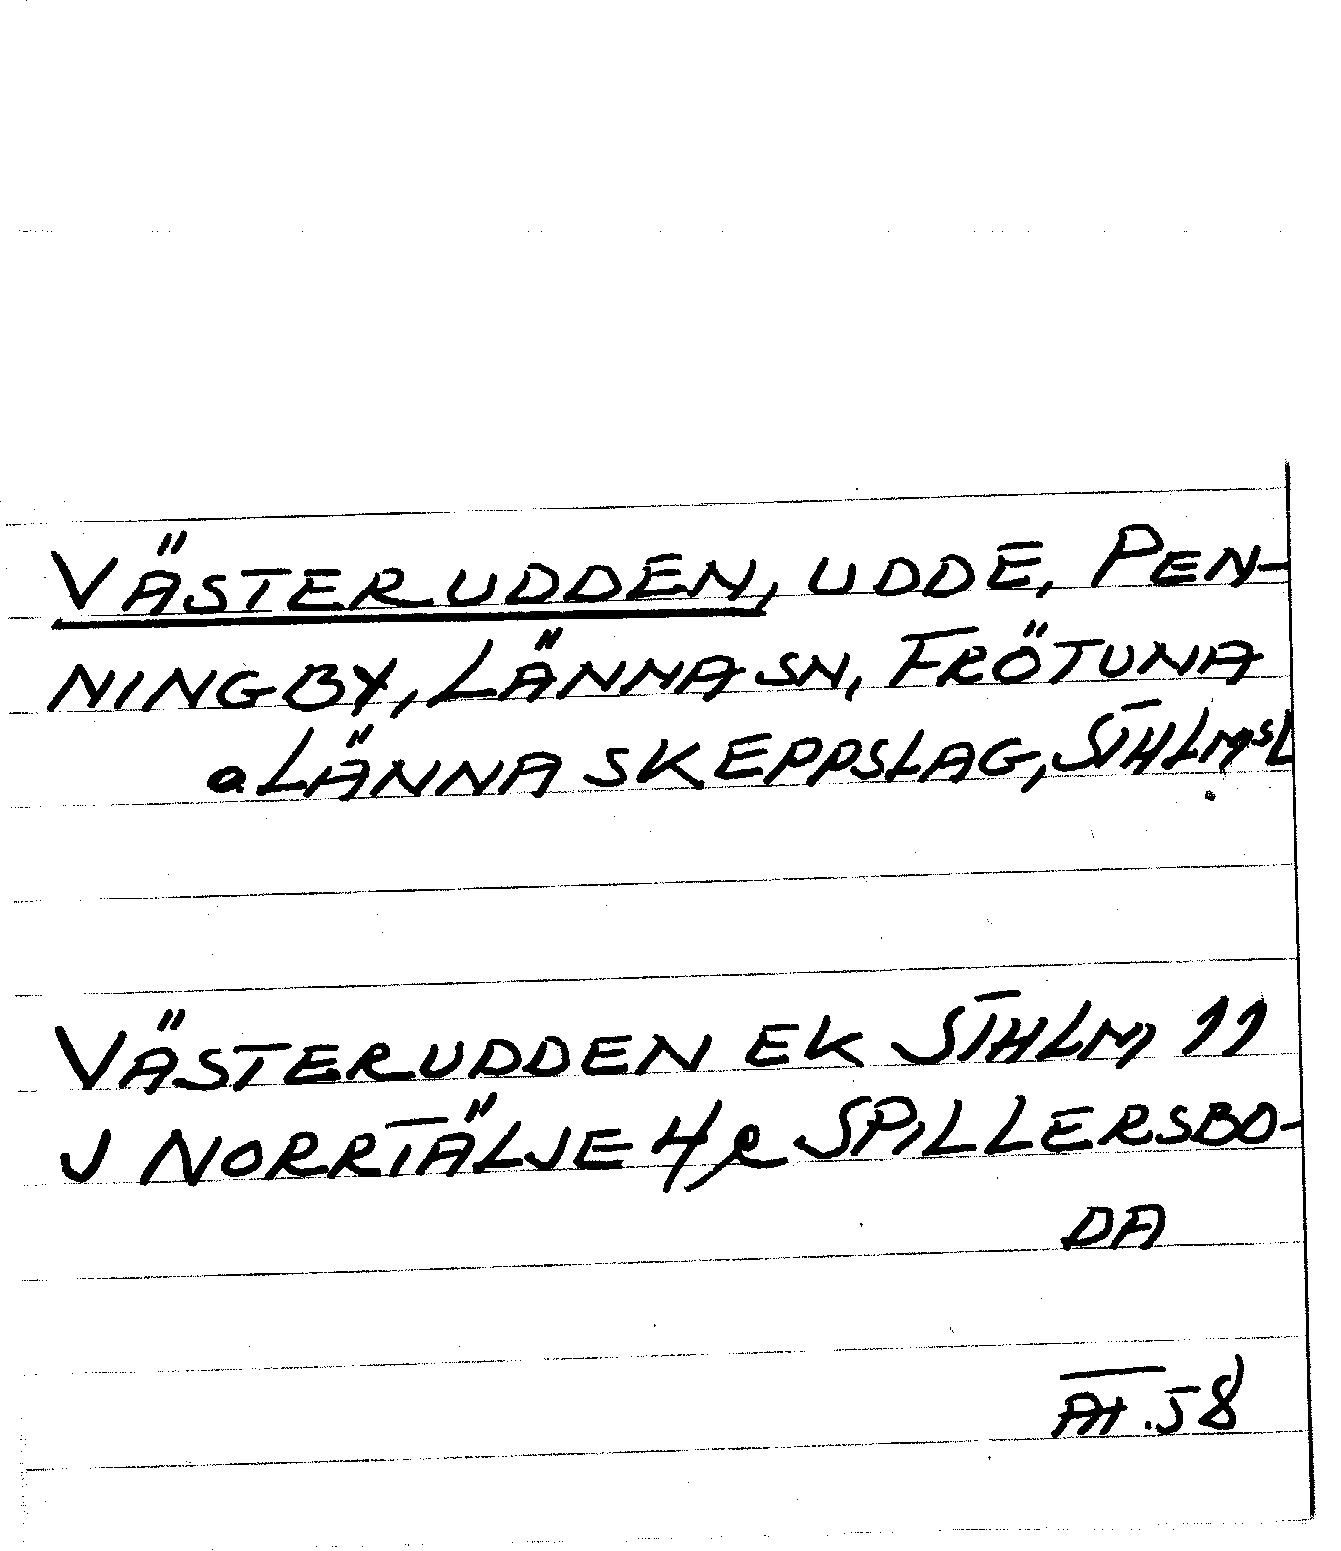 VÄSTERUDDEN, UDDE, PEN-
NINGBY, LÄNNA SN, FRÖTUNA
o LÄNNA SKEPPSLAG, STHLMSL
VÄSTERUDDEN EK STHLM 11
J NORRTÄLJE 4 SPILLERSBO-
DA
.58